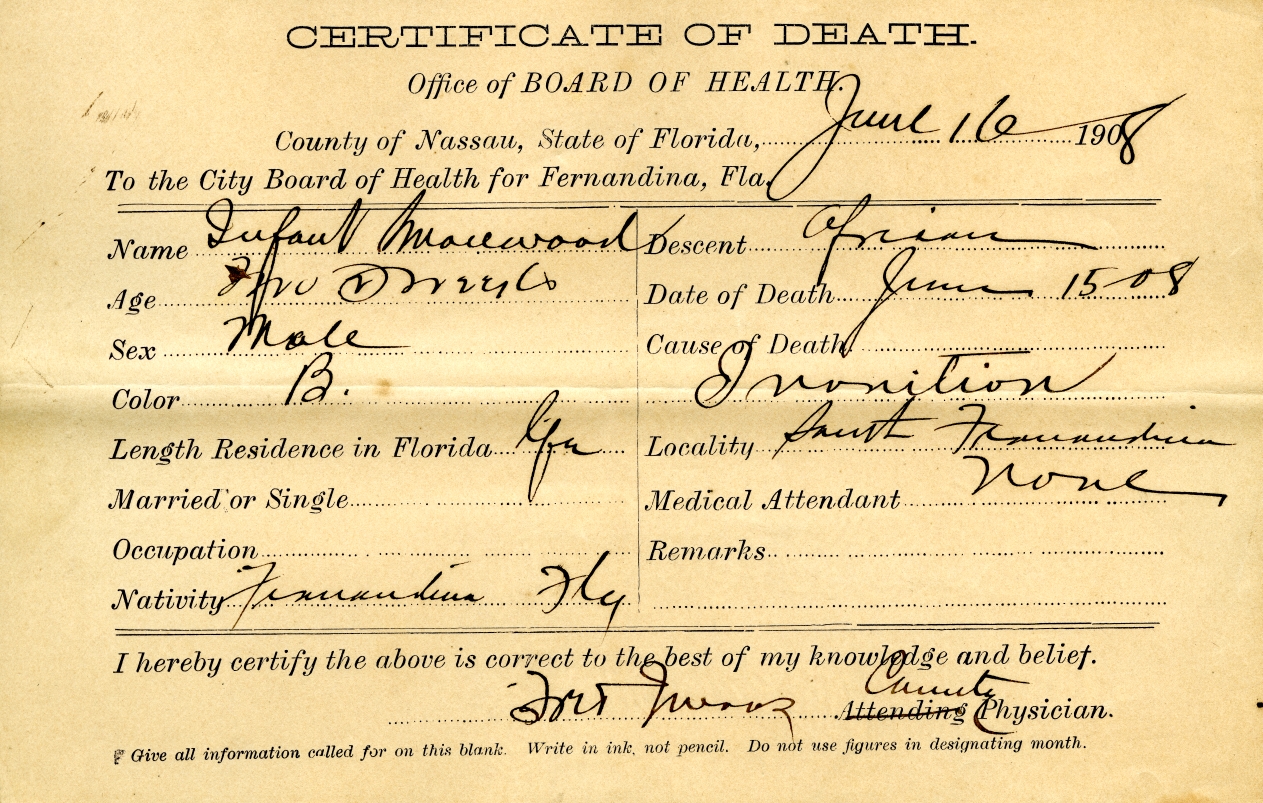 CERTIFICATE OF DEATH.
Office of BOARD OF HEALTH.
County of Nassau, State of Florida, June 16 1908
To the City Board of Health for Fernandina, Fla.
Name Infant
Descent African
Age Two Weeks
Date of Death June 15-08
Sex Male
Cause of Death
Color B.
Inanition
Length Residence in Florida life
Locality South Fernandina
Married or Single
Medical Attendant None
Occupation
Remarks
Nativity Fernandina Fla
I hereby certify the above is correct to the best of my knowledge and belief.
County
Attending Physician.
Give all information called for on this blank. Write in ink, not pencil. Do not use figures in designating month.